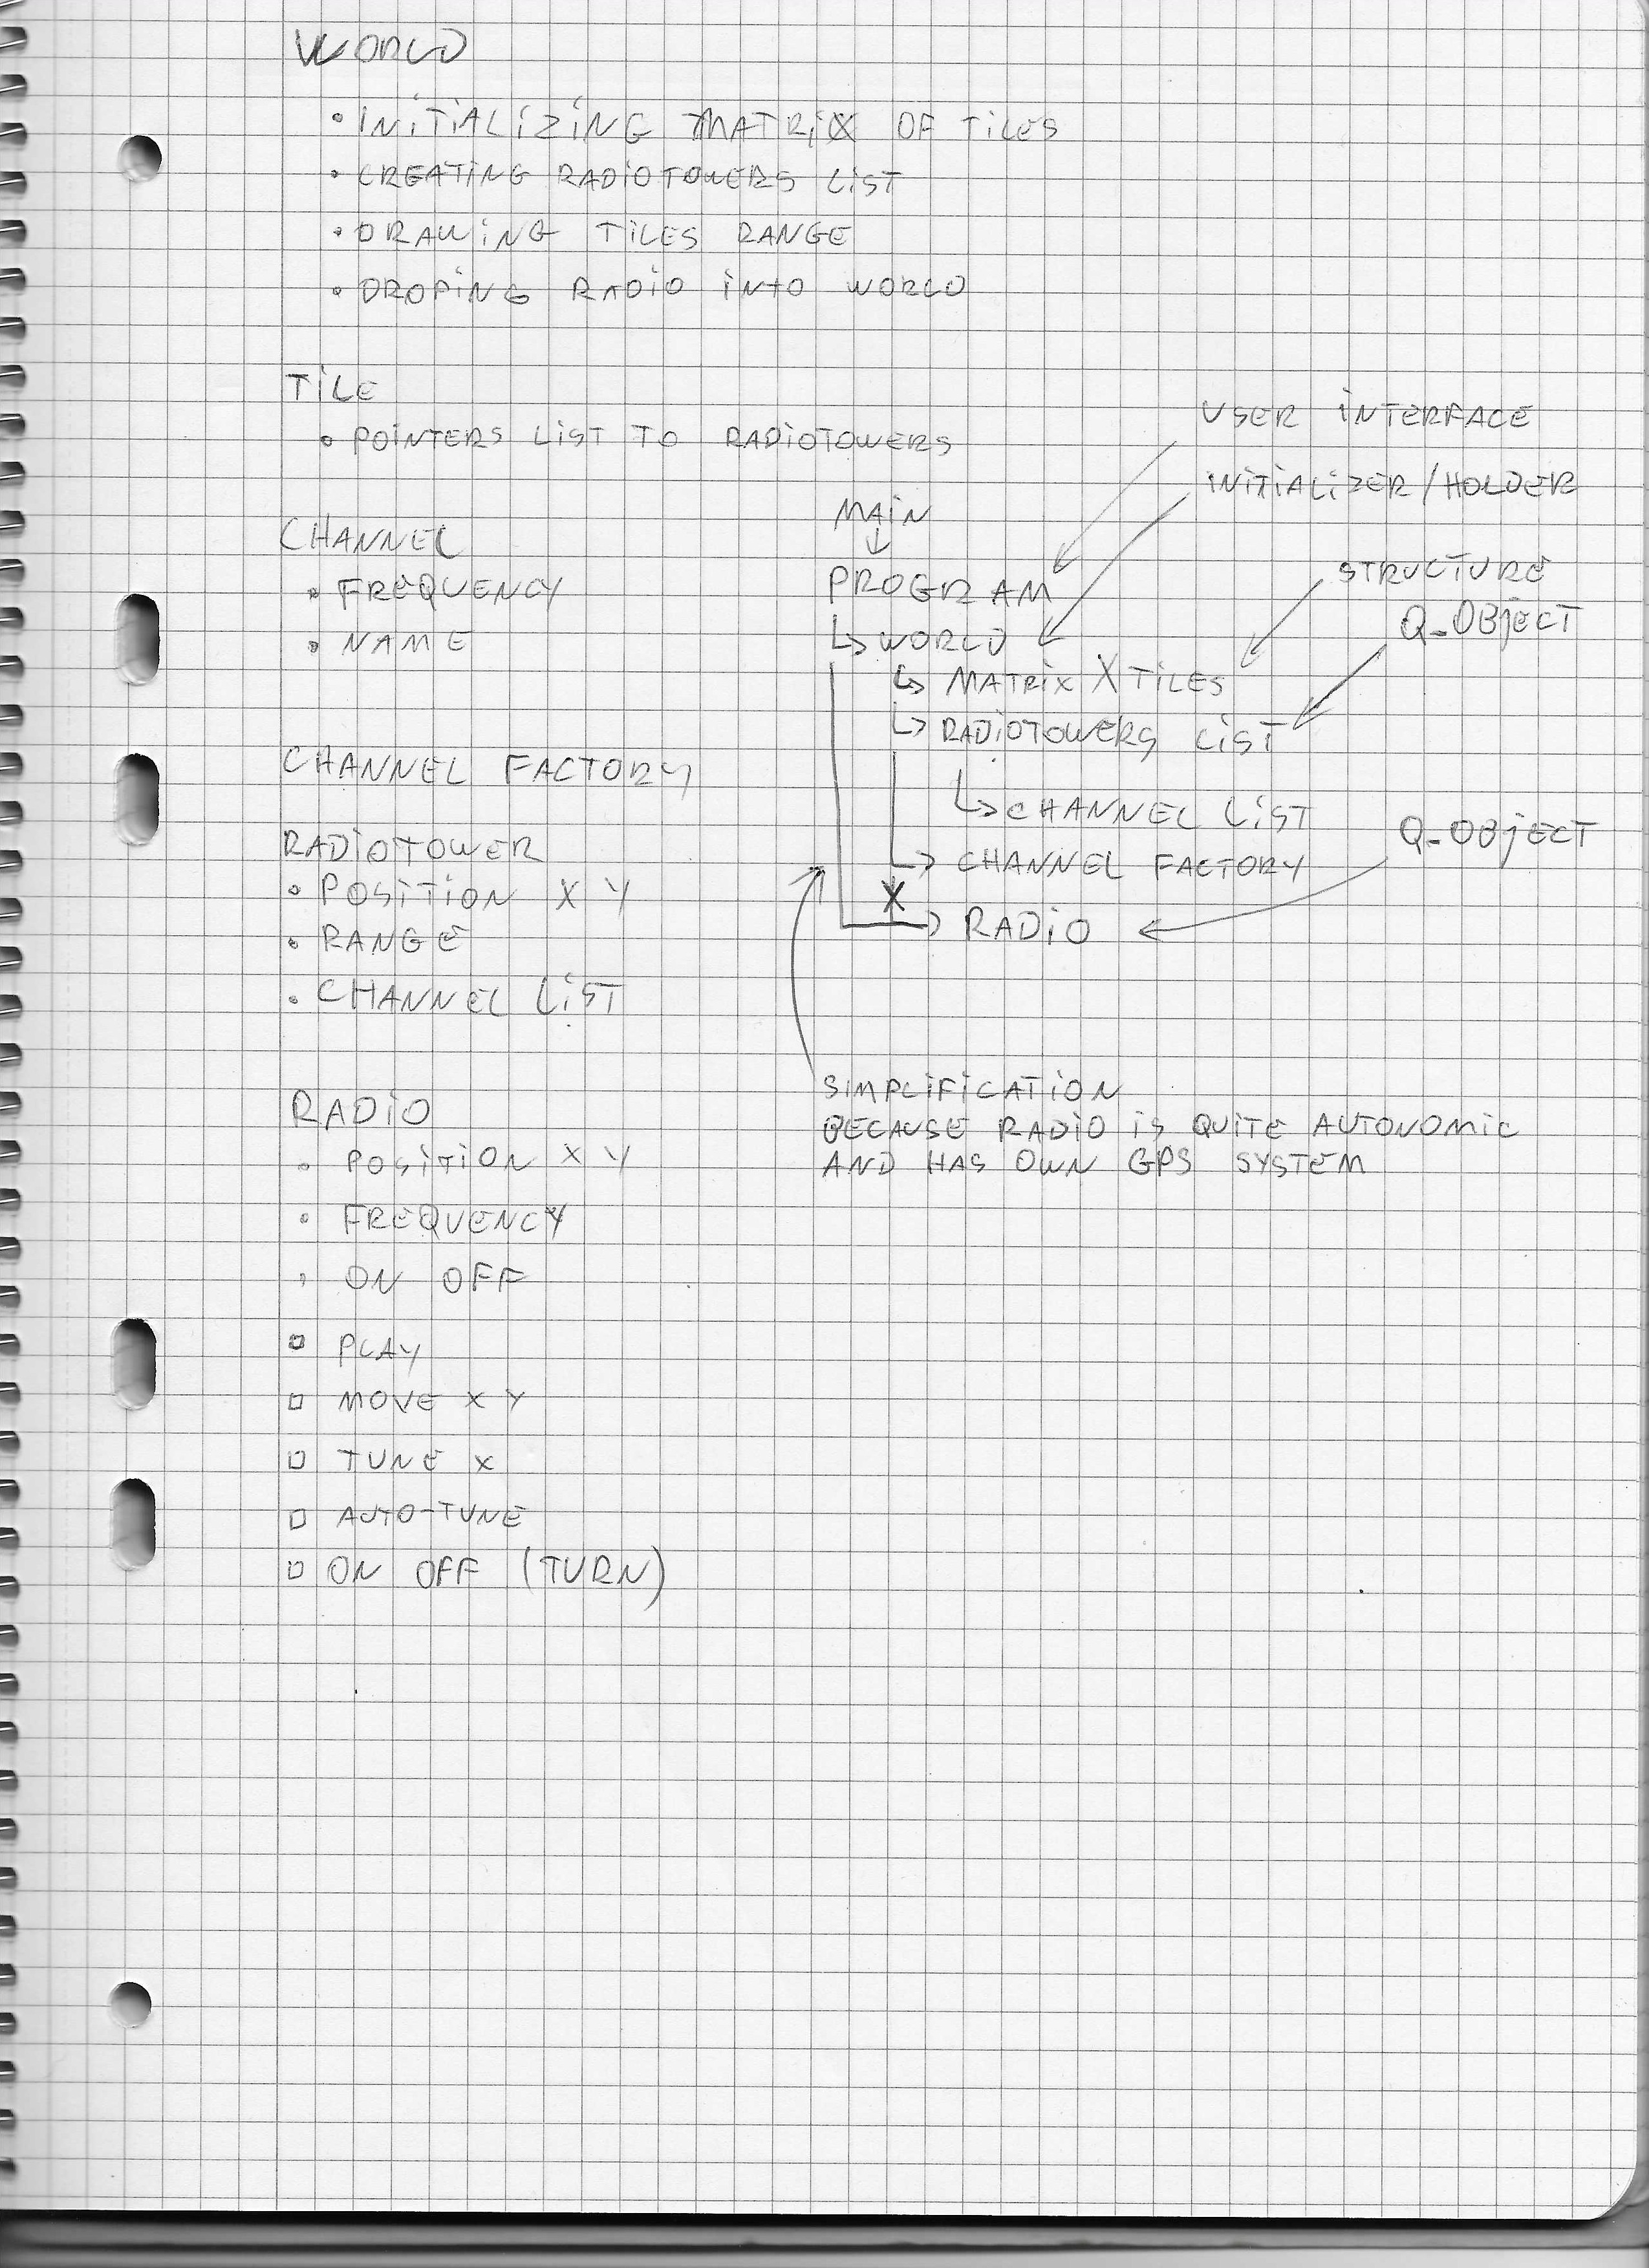 WORLD
• INITIALIZING MATRIX OF TILES
• CREATING RADIOTOWERS LIST
• DRAWING TILES RANGE
• DROPING RADIO INTO WORLD
TILE
• POINTERS LIST TO RADIOTOWERS
CHANNEL
• FREQUENCY
• NAME
CHANNEL FACTORY
RADIOTOWER
• POSITION X Y
• RANGE
• CHANNEL LIST
RADIO
• POSITION X Y
• FREQUENCY
• ON OFF
□ PLAY
□ MOVE X Y
□ TUNE X
□ AUTO-TUNE
□ ON OFF (TURN)
USER INTERFACE
INITIALIZER/HOLDER
STRUCTURE
Q_OBJECT
MAIN
↓
PROGRAM
↳ WORLD
↳ MATRIX X TILES
↳ RADIOTOWERS LIST
↳ CHANNEL LIST
↳ CHANNEL FACTORY
X
→ RADIO
Q_OBJECT
SIMPLIFICATION
BECAUSE RADIO IS QUITE AUTONOMIC
AND HAS OWN GPS SYSTEM